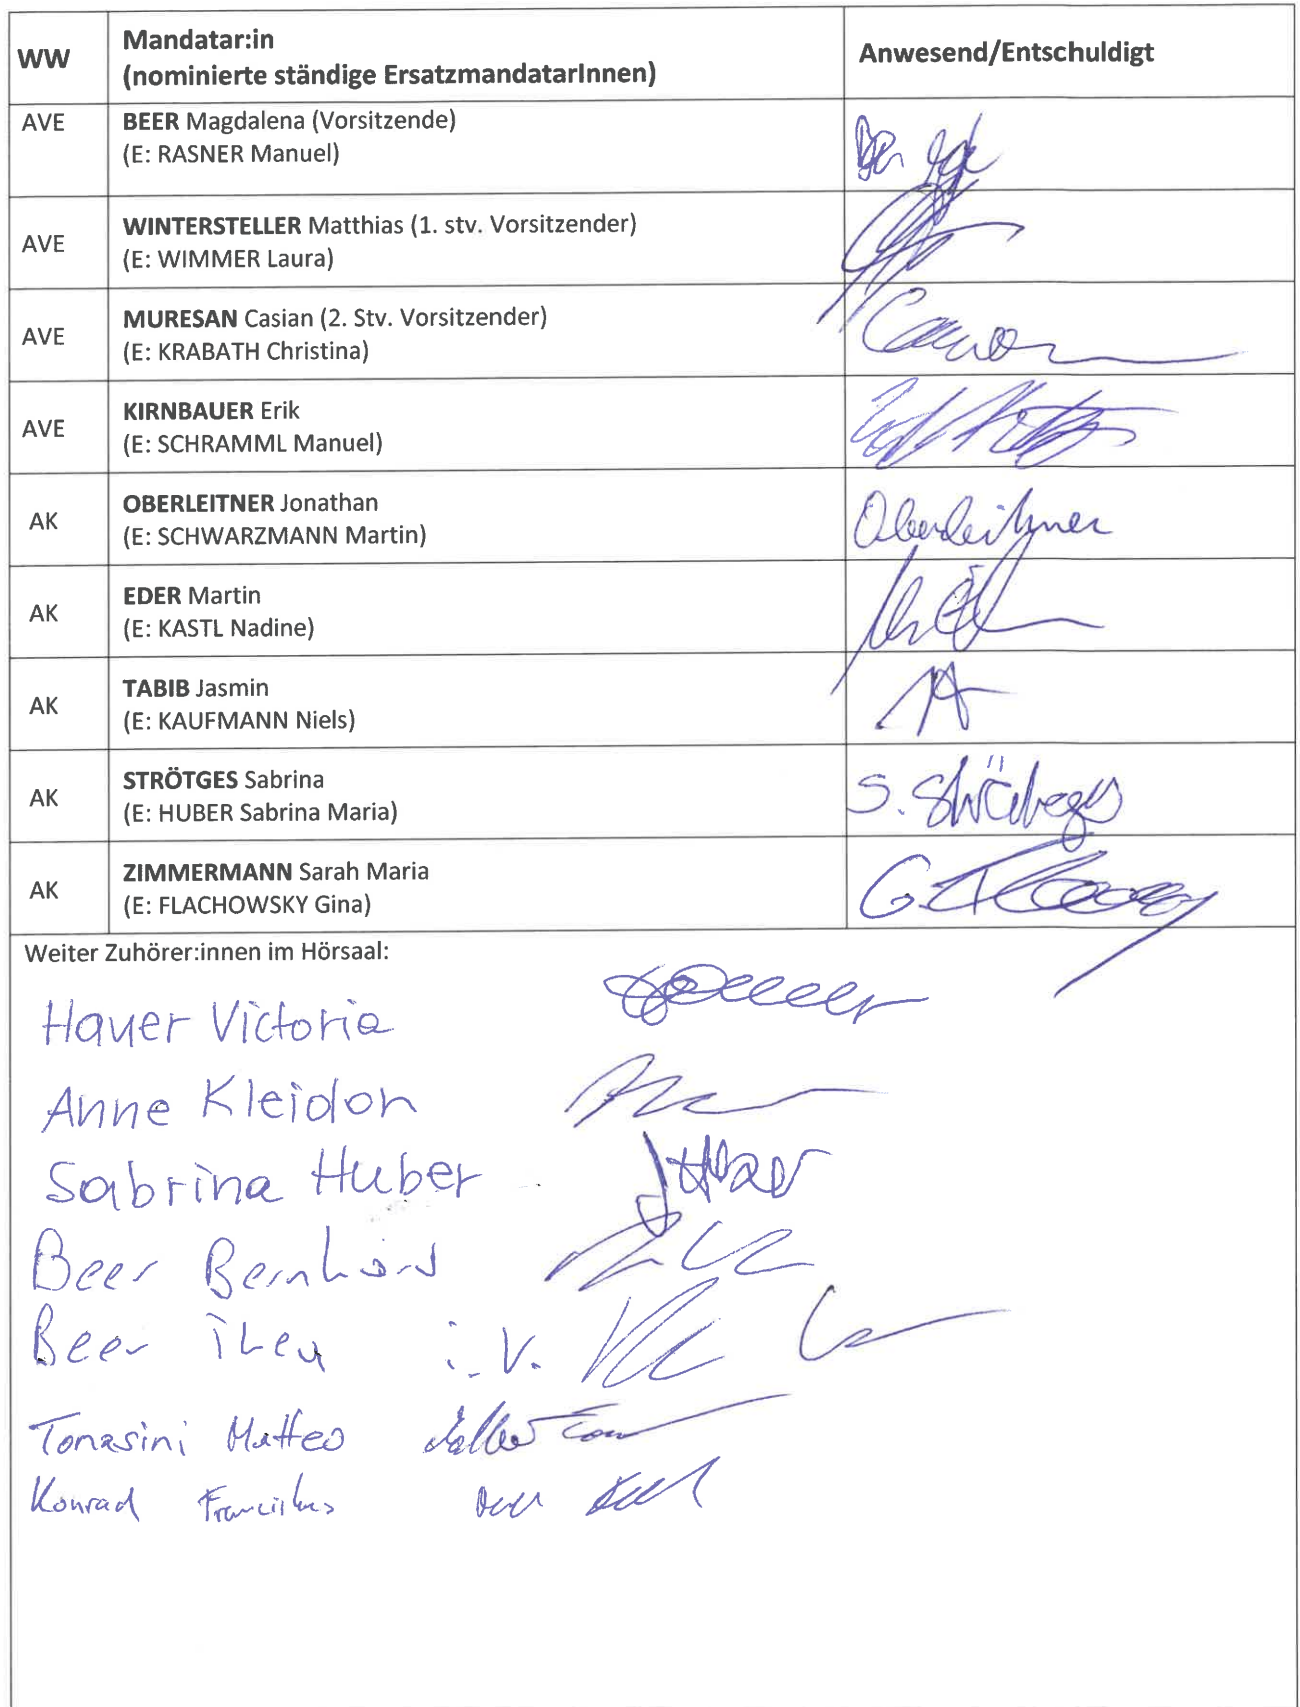 WW Mandatar:in Anwesend/Entschuldigt
(nominierte ständige ErsatzmandatarInnen)
AVE BEER Magdalena (Vorsitzende)
(E: RASNER Manuel)
AVE WINTERSTELLER Matthias (1. stv. Vorsitzender)
(E: WIMMER Laura)
AVE MURESAN Casian (2. Stv. Vorsitzender)
(E: KRABATH Christina)
AVE KIRNBAUER Erik
(E: SCHRAMML Manuel)
AK OBERLEITNER Jonathan Oberleitner
(E: SCHWARZMANN Martin)
AK EDER Martin
(E: KASTL Nadine)
AK TABIB Jasmin
(E: KAUFMANN Niels)
AK STRÖTGES Sabrina S. Strötges
(E: HUBER Sabrina Maria)
AK ZIMMERMANN Sarah Maria
(E: FLACHOWSKY Gina)
Weiter Zuhörer:innen im Hörsaal:
Hauer Victoria
Anne Kleidon
Sabrina Huber
Beer Bernhard
Beer i.V.
Tomasini Matteo
Konrad Franciskus